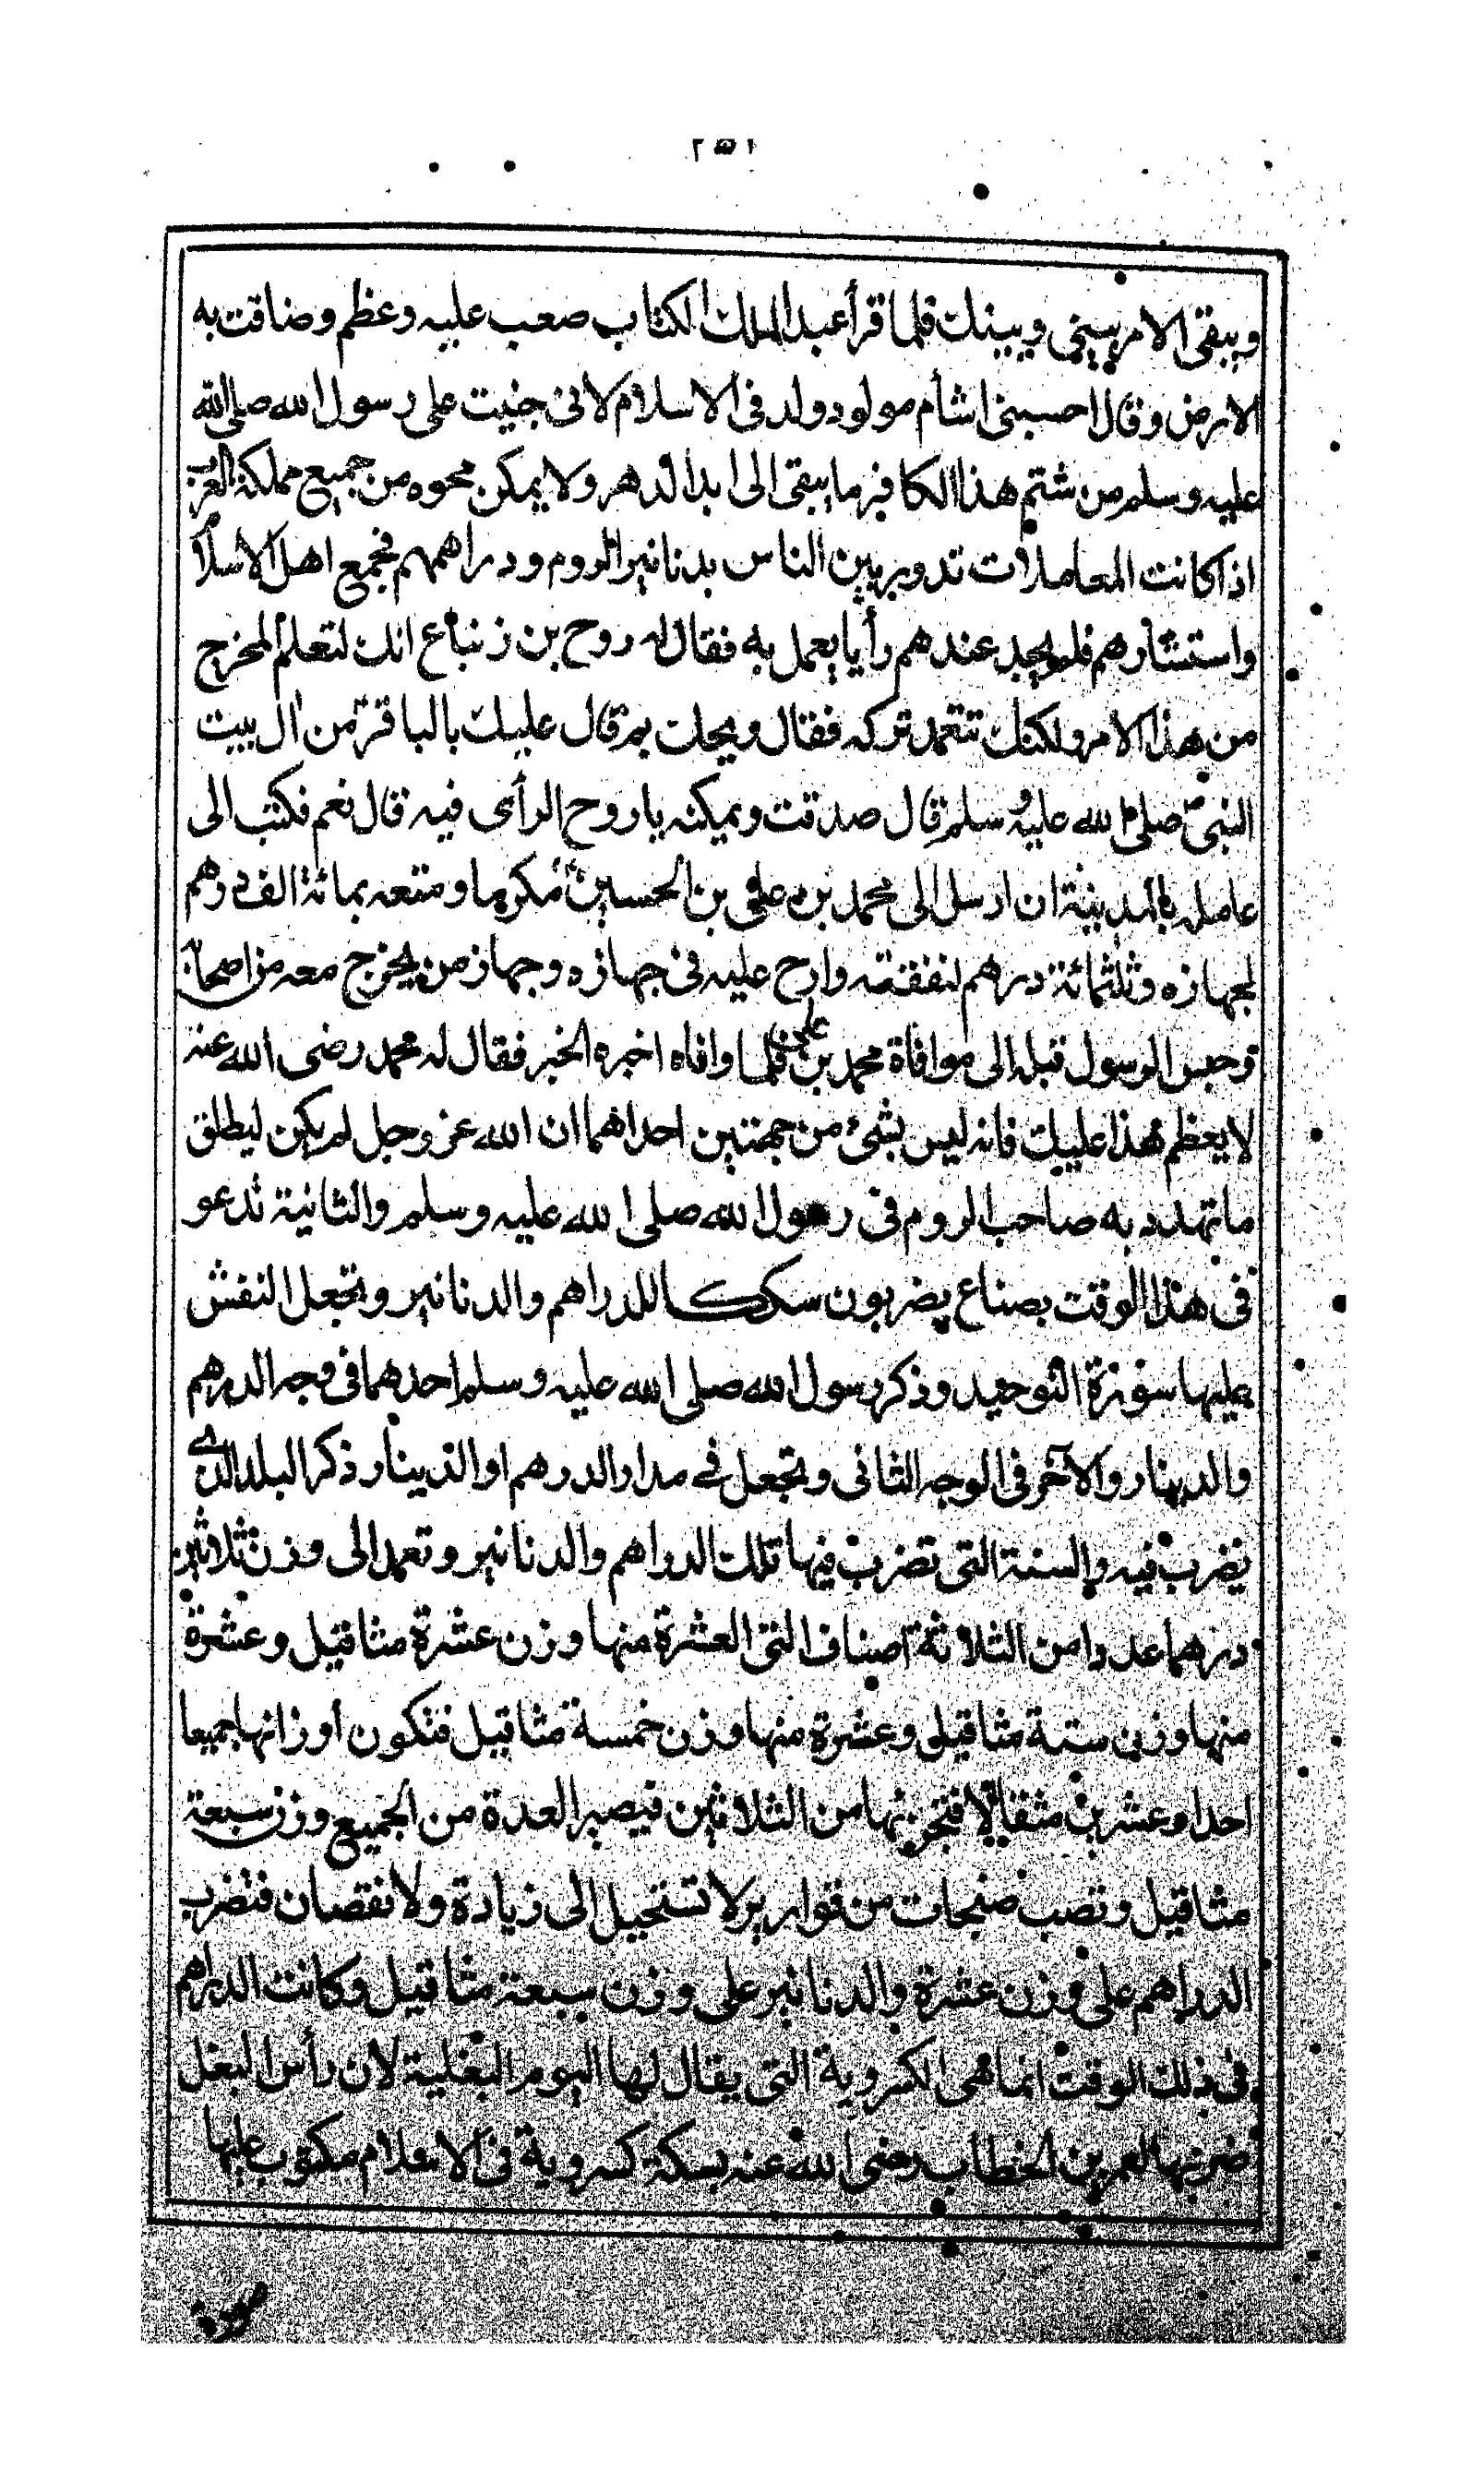 ٢٥١
ويبقى الامر بيني وبينك فلما قرأ عبدالملك الكتاب صعب عليه وعظم وضاقت به
الارض وقال احسبني اشأم مولود ولد في الاسلام لاني جنيت على رسول الله صلى الله
عليه وسلم من شتم هذا الكافر ما يبقى الى ابد الدهر ولا يمكن محوه من جميع مملكة العرب
اذ كانت المعاملات تدور بين الناس بدنانير الروم ودراهمهم فجمع اهل الاسلام
واستشارهم فلم يجد عندهم رأيا يعمل به فقال له روح بن زنباع انك لتعلم المخرج
من هذا الامر ولكنك تتعمد تركه فقال ويحك من قال عليك بالباقر من ال بيت
النبي صلى الله عليه وسلم قال صدقت ويمكنه يا روح الرأى فيه قال نعم فكتب الى
عامله بالمدينة ان ارسل الى محمد بن علي بن الحسين مكرما ومتعه بمائة الف درهم
لجهازه وثلثمائة درهم لنفقته وارح عليه في جهازه وجهاز من يخرج معه من اصحابه
وحبس الرسول قبله الى موافاة محمد بن علي فلما وافاه اخبره الخبر فقال له محمد رضى الله عنه
لا يعظم هذا عليك فانه ليس بشئ من جهتين احداهما ان الله عز وجل لم يكن ليطلق
ما تهدد به صاحب الروم في رسول الله صلى الله عليه وسلم والثانية تدعو
في هذا الوقت بصناع يضربون سككا للدراهم والدنانير وتجعل النقش
عليها سورة التوحيد وذكر رسول الله صلى الله عليه وسلم احدهما في وجه الدرهم
والدينار والآخر في الوجه الثاني وتجعل في مدار الدرهم او الدينار ذكر البلد الذي
يضرب فيه والسنة التي تضرب فيها تلك الدراهم والدنانير وتعمد الى وزن ثلاثين
درهما عددا من الثلاثة اصناف التي العشرة منها وزن عشرة مثاقيل وعشرة
منها وزن ستة مثاقيل وعشرة منها وزن خمسة مثاقيل فتكون اوزانها جميعا
احدا وعشرين مثقالا فتجزئها من الثلاثين فيصير العدة من الجميع وزن سبعة
مثاقيل وتصب صنجات من قوارير لا تستحيل الى زيادة ولا نقصان فتضرب
الدراهم على وزن عشرة والدنانير على وزن سبعة مثاقيل وكانت الدراهم
في ذلك الوقت انما هي الكسروية التي يقال لها اليوم البغلية لان رأس البغل
ضربها لعمر بن الخطاب رضى الله عنه بسكة كسروية في الاسلام مكتوب عليها
صورة